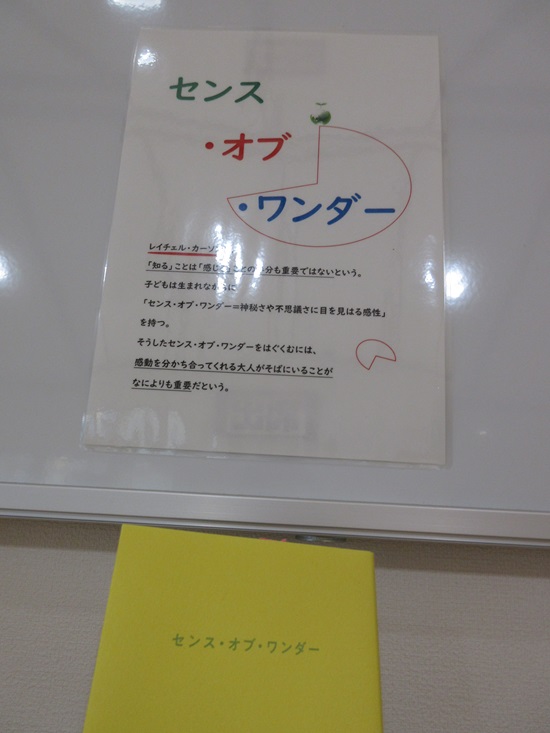 センス
・オブ
・ワンダー
レイチェル・カーソン
「知る」ことは「感じる」ことの 分も重要ではないという。
子どもは生まれながらに
「センス・オブ・ワンダー=神秘さや不思議さに目を見はる感性」
を持つ。
そうしたセンス・オブ・ワンダーをはぐくむには、
感動を分かち合ってくれる大人がそばにいることが
なによりも重要だという。
センス・オブ・ワンダー